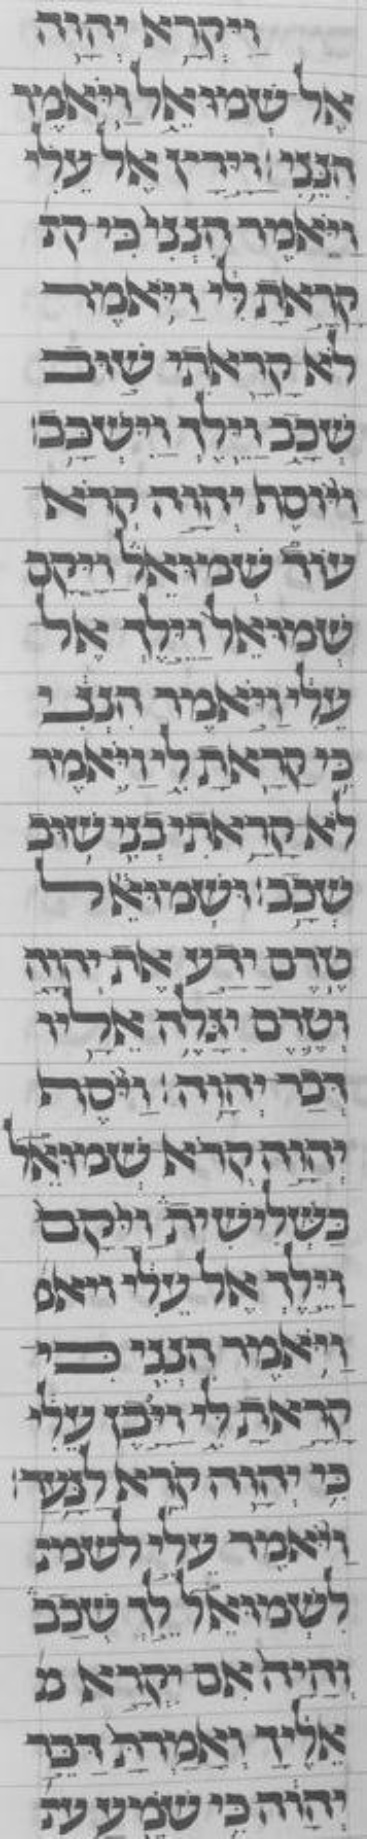 וַיִּקְרָא יְהוָה
אֶל שְׁמוּאֵל וַיֹּאמֶר
הִנֵּנִי׃ וַיָּרָץ אֶל עֵלִי
וַיֹּאמֶר הִנְנִי כִּי קר
קָרָאתָ לִּי וַיֹּאמֶר
לֹא קָרָאתִי שׁוּב
שְׁכָב וַיֵּלֶךְ וַיִּשְׁכָּב׃
וַיֹּוסֶף יְהוָה קְרֹא
עוֹד שְׁמוּאֵל וַיָּקָם
שְׁמוּאֵל וַיֵּלֶךְ אֶל
עֵלִי וַיֹּאמֶר הִנְנִי
כִּי קָרָאתָ לִי וַיֹּאמֶר
לֹא קָרָאתִי בְנִי שׁוּב
שְׁכָב׃ וּשְׁמוּאֵל
טֶרֶם יָדַע אֶת יְהוָה
וְטֶרֶם יִגָּלֶה אֵלָיו
דְּבַר יְהוָה׃ וַיֹּסֶף
יְהוָה קְרֹא שְׁמוּאֵל
בַּשְּׁלִישִׁית וַיָּקָם
וַיֵּלֶךְ אֶל עֵלִי ויאמ
וַיֹּאמֶר הִנְנִי כִּי
קָרָאתָ לִי וַיָּבֶן עֵלִי
כִּי יְהוָה קֹרֵא לַנָּעַר׃
וַיֹּאמֶר עֵלִי לשמו
לִשְׁמוּאֵל לֵךְ שְׁכָב
וְהָיָה אִם יִקְרָא
אֵלֶיךָ וְאָמַרְתָּ דַּבֵּר
יְהוָה כִּי שֹׁמֵעַ עב